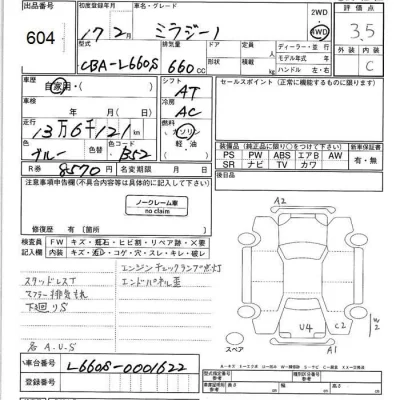 出品番号 初度登録年月 車名・グレード 評価点
604 17年2月 ミラジーノ 2WD 4WD 3.5
型式 排気量 ドア 定員 ディーラー・並行 外装 内装
CBA-L660S 660cc 形状 積載量 人 kg モデル年式 年 ハンドル 左・右 C
車歴 シフト セールスポイント（正常に機能するものに限る）
自家用・（ ） AT
車検 冷房
年 月 AC
走行 燃料
13万6千121km ガソリン 軽・油
色 色替 色No. 装備品（純正品に限り○をつけて下さい） 新車保証書
ブルー B52 PS PW ABS エアB AW 有・無
R券 8570 名変期限 月 日 SR ナビ TV カワ
注意事項申告欄（不具合内容等は具体的に記入して下さい） 後日品
ノークレーム車
no claim
修復歴（箇所） 有
検査員 FW キズ・飛石・ヒビ割・リペア跡・X要
記入欄 内装 キズ・汚・コゲ・穴・スレ・キレ・破レ
エンジンチェックランプ点灯
スタッドレスT エンドパネル歪
マフラー排気もれ
下廻りS
名 A.U.S
車台番号 L660S-0001622
登録番号
A2
U4
C2
W2
A1
スペア